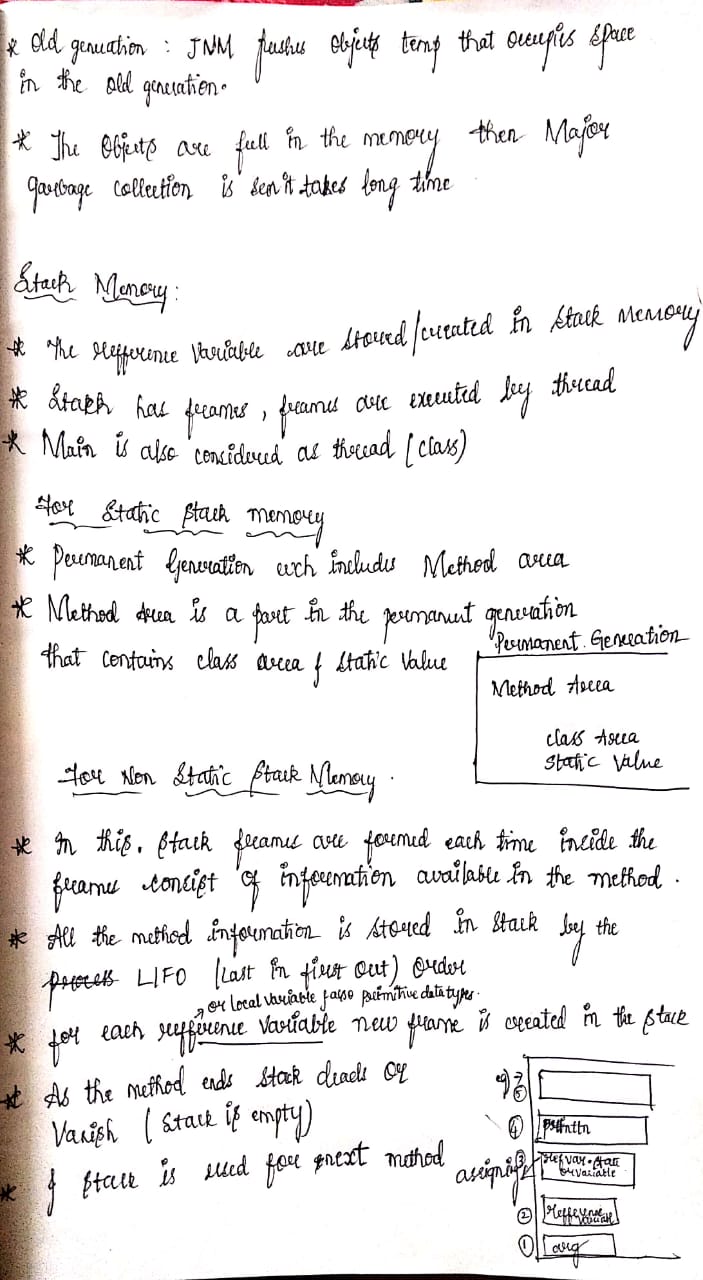 * Old genuation : JNM flushes objects temp that occupies space
in the old generation.
* The Objects are full in the memory then Major
garbage collection is it takes long time
Stack Memory:
* The refference Variable are stored/created in stack memory
* Stack has frames, frames are executed by thread
* Main is also considered as thread (class)
For Static stack memory
* Permanent Generation includes Method area
* Method Area is a part in the permanent generation
that contains class area & static value
Permanent. Generation
Method Area
class Area
static Value
For Non Static stack Memory.
* In this, stack frames are formed each time inside the
frames consist of information available in the method.
* All the method information is stored in stack by the
process LIFO (last in first out) order
or local variable primitive datatypes.
* for each refference variable new frame is created in the stack
* As the method ends stack deads or
Vanish (stack is empty)
* & stack is used for next method
eg:
⑤
④ println
③ assigning ref var
or variable
② Refference
variable
① arg